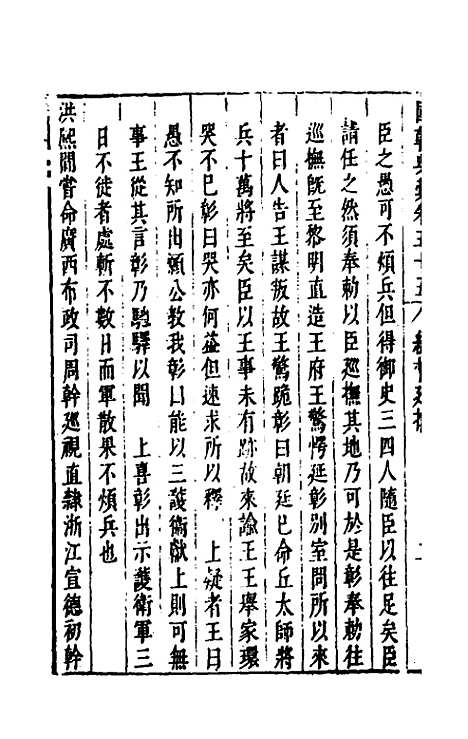 國朝典彙卷五十五
臣之愚可不煩兵但得御史三四人隨臣以往足矣臣
請任之然須奉勅以臣巡撫其地乃可於是彰奉勅往
巡撫旣至黎明直造王府王驚愕延彰別室問所以來
者曰人告王謀叛故王驚跪彰曰朝廷巳命丘太師將
兵十萬將至矣臣以王事未有跡故來諭王王舉家環
哭不巳彰曰哭亦何益但速求所以釋 上疑者王曰
愚不知所出願公教我彰曰能以三護衛獻上則可無
事王從其言彰乃馳驛以聞 上喜彰出示護衛軍三
日不徒者處斬不數日而軍散果不煩兵也
洪熙間嘗命廣西布政司周幹巡視直隷浙江宣德初幹